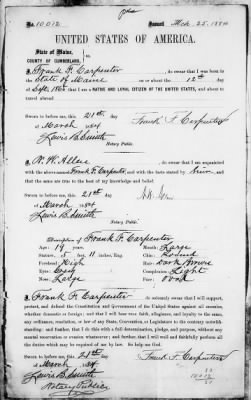 No. 10012 Issued Mch. 25. 1884
UNITED STATES OF AMERICA.
State of Maine,
COUNTY OF CUMBERLAND,
I, Frank F. Carpenter, do swear that I was born in the
State of Maine on or about the 12th day
of Sept. that I am a NATIVE AND LOYAL CITIZEN OF THE UNITED STATES, and about to
travel abroad.
Sworn to before me, this 21st day
of March 1884
Lewis B. Smith
Notary Public.
Frank F. Carpenter
I, W. W. Allen, do swear that I am acquainted
with the above-named Frank F. Carpenter, and with the facts stated by him, and that
the same are true to the best of my knowledge and belief.
Sworn to before me, this 21st day
of March 1884
Lewis B. Smith
Notary Public.
Description of Frank F. Carpenter
Age: 19 years. Mouth: Large
Stature: 5 feet 11 inches, Eng. Chin: Round
Forehead: High Hair: Dark Brown
Eyes: Complexion: Light
Nose: Large Face:
I, Frank F. Carpenter, do solemnly swear that I will support,
protect, and defend the Constitution and Government of the United States against all enemies,
whether domestic or foreign; and that I will bear true faith, allegiance, and loyalty to the same,
any ordinance, resolution, or law of any State, Convention, or Legislature to the contrary notwith-
standing; and further, that I do this with a full determination, pledge, and purpose, without any
mental reservation or evasion whatsoever; and further, that I will well and faithfully perform all
the duties which may be required of me by law. So help me God.
Sworn to before me, this 21st day
of March 1884
Lewis B. Smith
Notary Public
Frank F. Carpenter